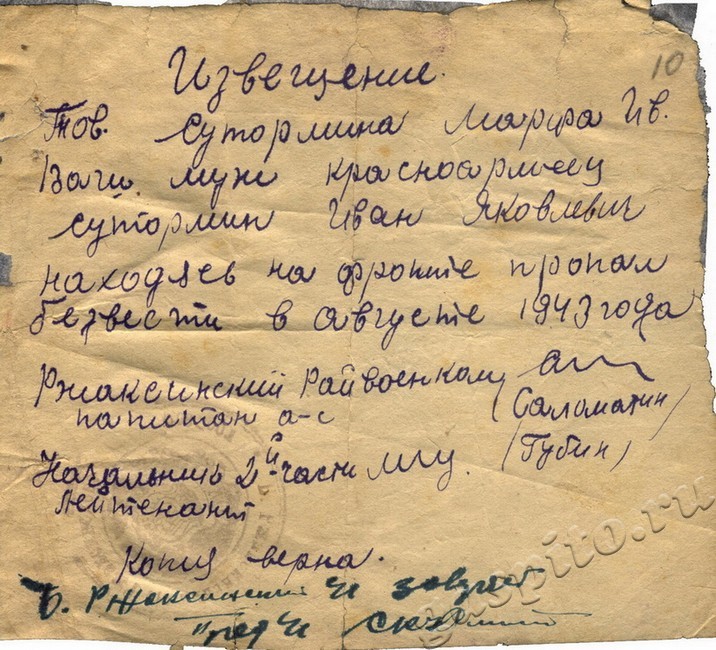 10
Извещение.
Тов. Сутормина Марфа Ив.
Ваш муж красноармеец
Сутормин Иван Яковлевич
находясь на фронте пропал
безвести в августе 1943 года
Ржаксинский Райвоенком
капитан а-с (Саломатин)
Начальник 2й части (Губин)
лейтенант
Копия верна.
gaspito.ru